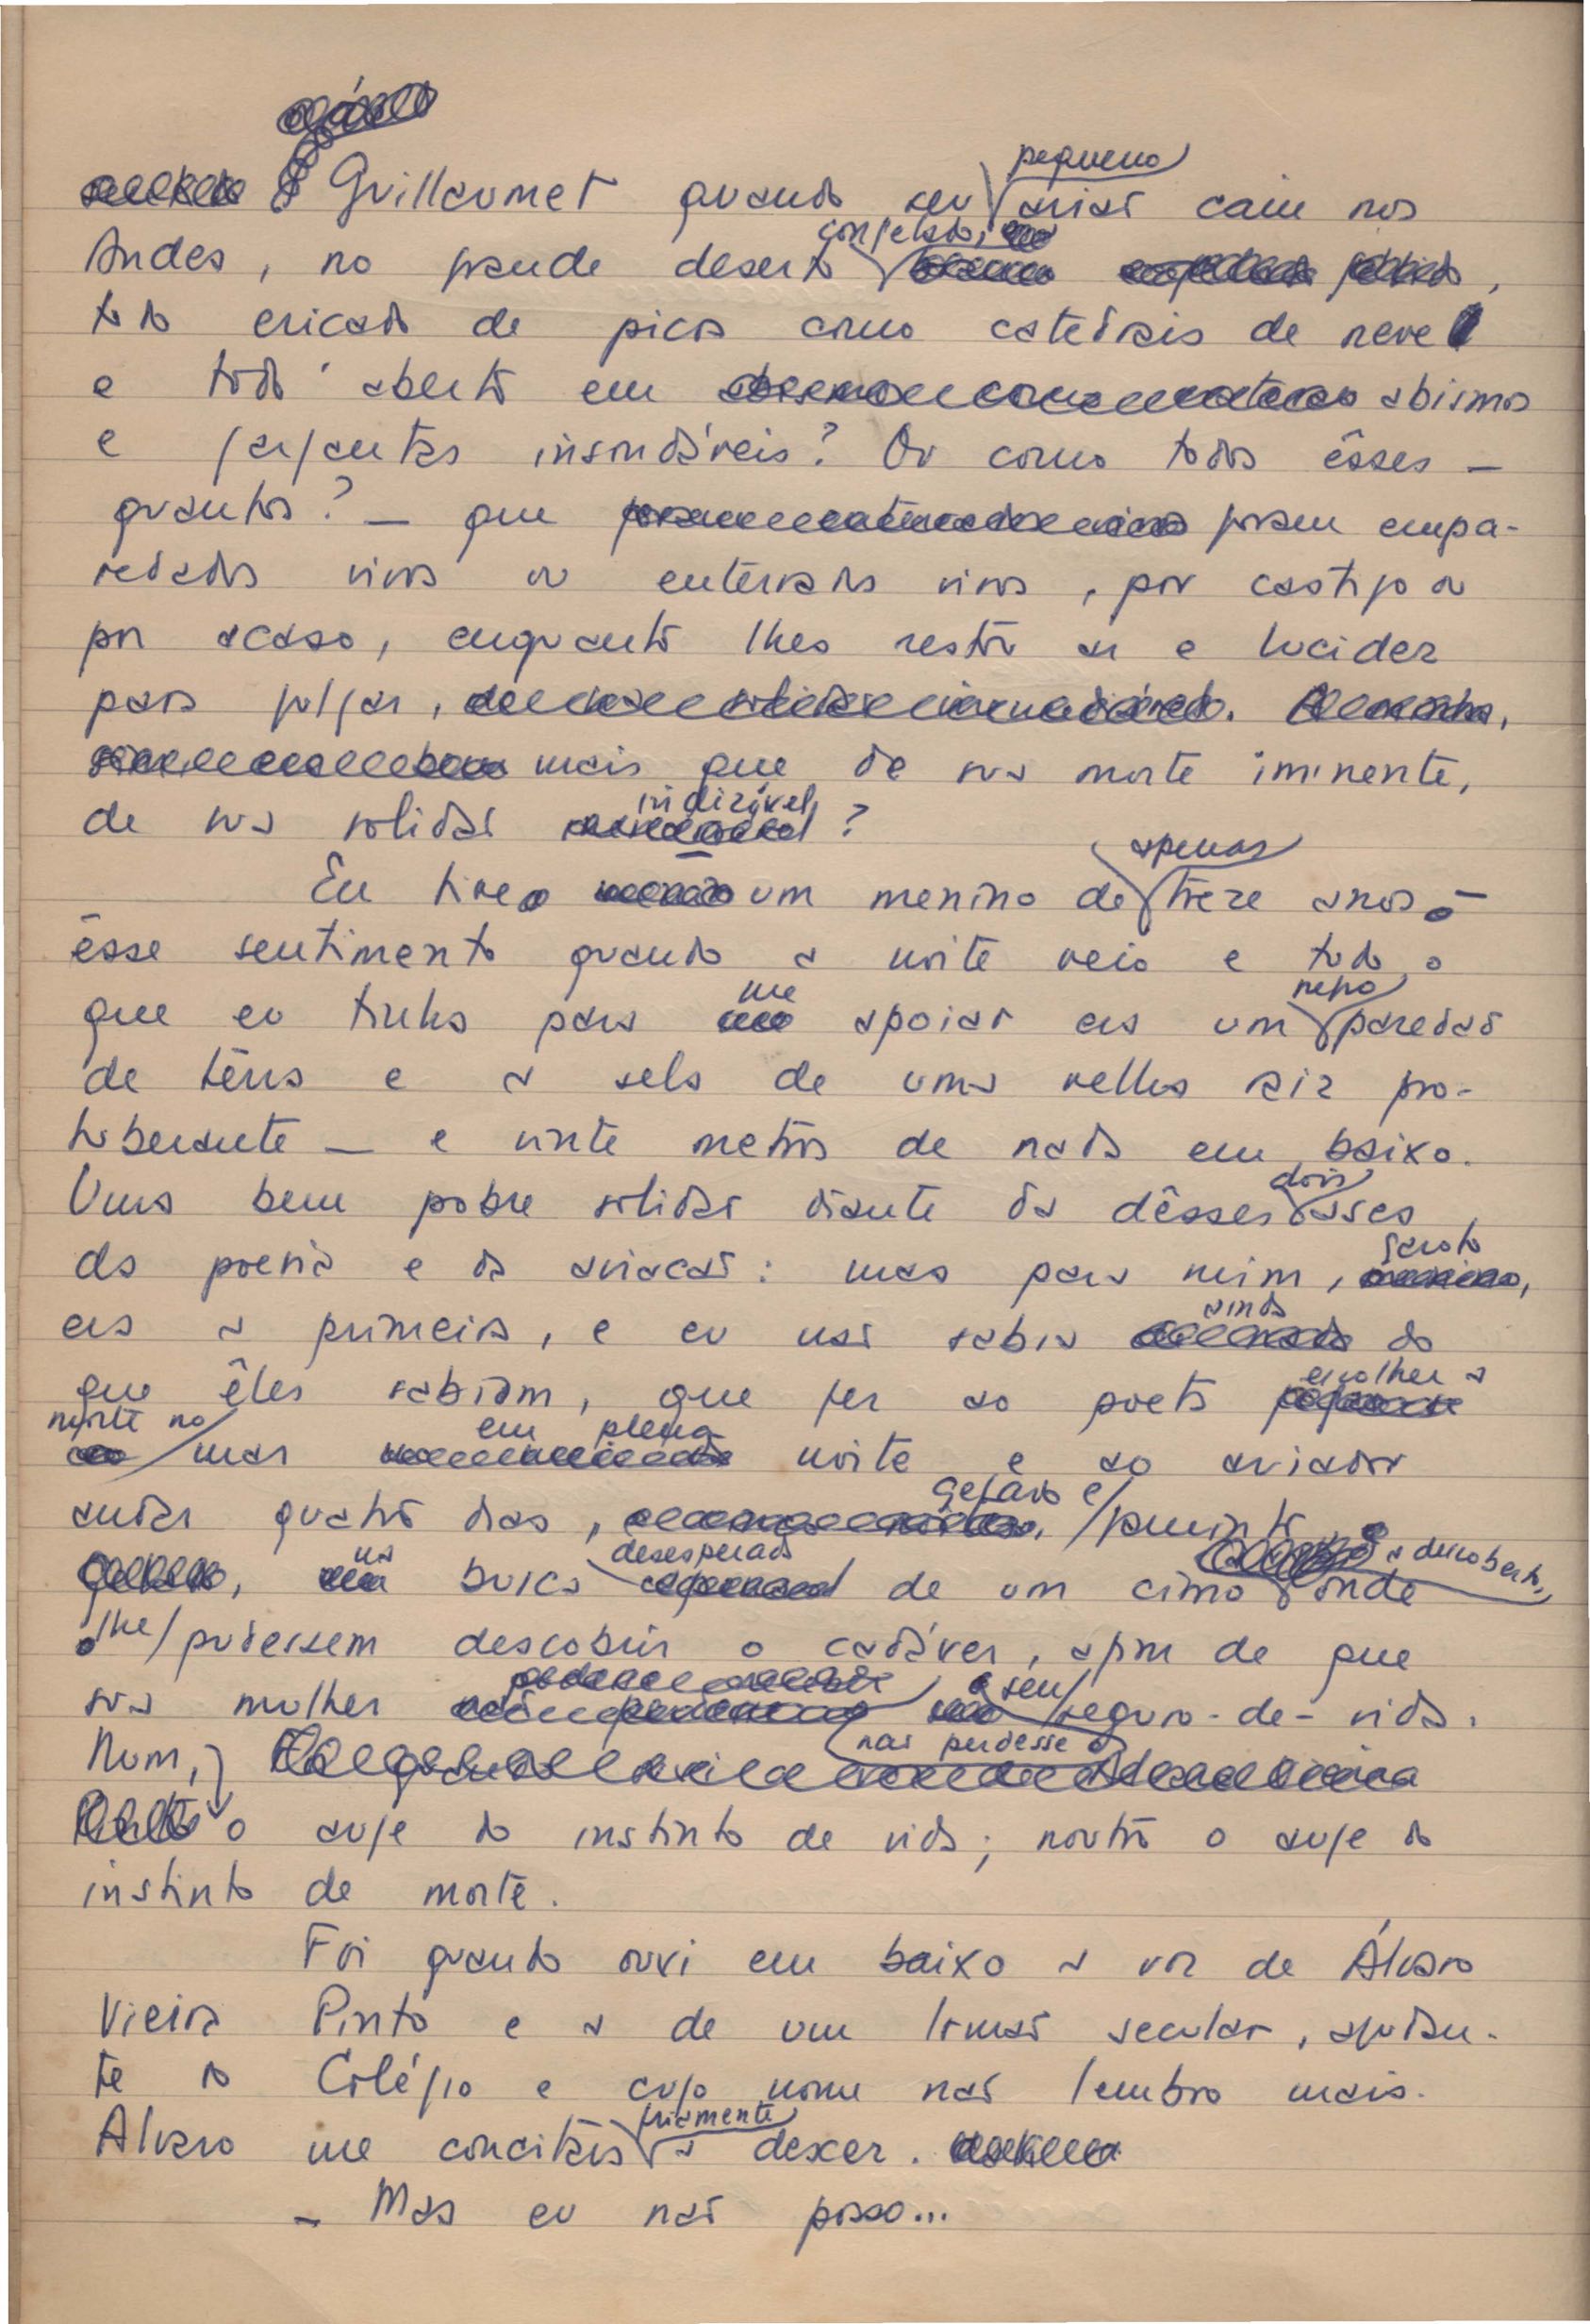 Guillaumet quando seu pequeno avião caiu nos
Andes, no grande deserto congelado,
todo eriçado de picos como catedrais de neve
e todo aberto em abismos
e gargantas insondáveis? Ou como todos êsses —
quantos? — que foram empa-
redados vivos ou enterrados vivos, por castigo ou
por acaso, enquanto lhes restou ar e lucidez
para julgar, mais que de sua morte iminente,
de sua solidão indizível?
Eu tive um menino de apenas treze anos —
êsse sentimento quando a noite veio e tudo o
que eu tinha para me apoiar era um negro paredão
de terra e a sela de uma velha raiz pro-
tuberante — e vinte metros de nada em baixo.
Uma bem pobre solidão diante da dêsses dois ases,
da poesia e da aviação: mas para mim, garoto,
era a primeira, e eu não sabia ainda do
que êles sabiam, que fez ao poeta escolher a
morte no mar em plena noite e ao aviador
andar quatro dias, gelado e faminto,
na busca desesperada de um cimo a descoberto, onde
lhe pudessem descobrir o cadáver, afim de que
sua mulher não perdesse o seu seguro-de-vida.
Num,
o auge do instinto de vida; noutro o auge do
instinto de morte.
Foi quando ouvi em baixo a voz de Álvaro
Vieira Pinto e a de um Irmão secular, ajudan-
te do Colégio e cujo nome não lembro mais.
Álvaro me concitava friamente a descer.
— Mas eu não posso...